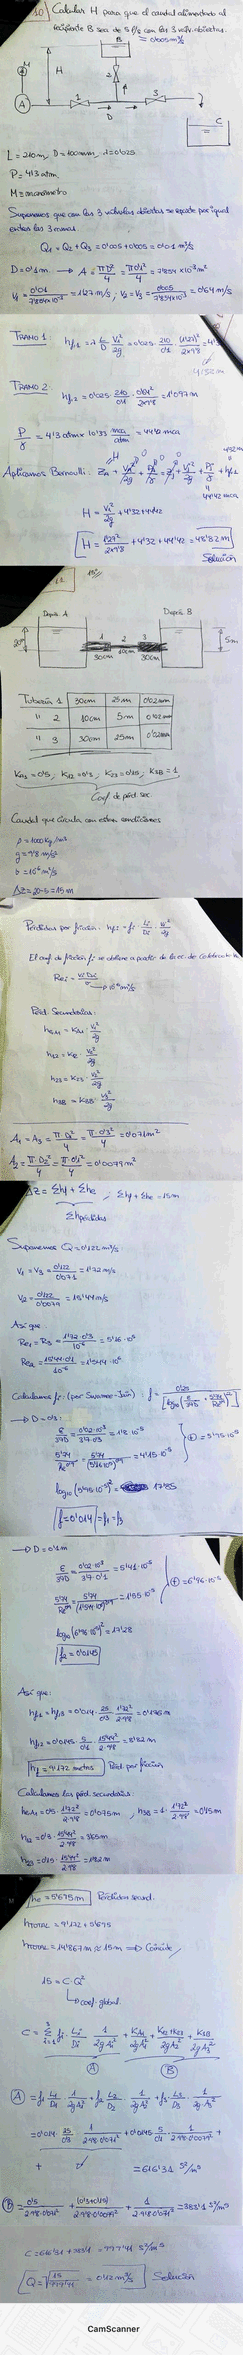 10 Calcular H para que el caudal alimentado al
recipiente B sea de 5 l/s con las 3 válv. abiertas.
= 0'005 m³/s
B
M
H
2
A
1
3
D
C
L = 210m, D = 100mm, λ = 0'025
P = 4'3 atm.
M = manómetro
Suponemos que con las 3 válvulas abiertas se reparte por igual
entre las 3 ramas.
Q₁ = Q₂ + Q₃ = 0'005 + 0'005 = 0'01 m³/s
D = 0'1m → A = πD²/4 = π0'1²/4 = 7'854×10⁻³ m²
V₁ = 0'01/7'854×10⁻³ = 1'27 m/s, V₂ = V₃ = 0'005/7'854×10⁻³ = 0'64 m/s
TRAMO 1: hf,1 = λ L/D V₁²/2g = 0'025 · 210/0'1 · (1'27)²/2×9'8
TRAMO 2:
hf,2 = 0'025 · 210/0'1 · 0'64²/2×9'8 = 1'097m
P/γ = 4'3 atm × 10'33 mca/atm = 44'42 mca
Aplicamos Bernoulli:
44'42 mca
H = V₁²/2g + 4'32 + 44'42
H = 1'27²/2×9'8 + 4'32 + 44'42 = 48'82 m
Solución
11
Depós. A
Depós. B
20m
1 2 3
30cm 10cm 30cm
5m
Tubería 1 30cm 25m 0'02mm
" 2 10cm 5m 0'02mm
" 3 30cm 25m 0'02mm
KA1 = 0'5, K12 = 0'3, K23 = 0'15, K3B = 1
Coef de pérd. sec.
Caudal que circula con estas condiciones
ρ = 1000 Kg/m³
g = 9'8 m/s²
υ = 10⁻⁶ m²/s
ΔZ = 20-5 = 15m
Pérdidas por fricción: hfi = fi · Li/Di · Vi²/2g
El coef. de fricción fi se obtiene a partir de la ec. de Colebrook
Rei = Vi Di/υ → 10⁻⁶ m²/s
Pérd. Secundarias:
hA1 = KA1 · V₁²/2g
h12 = K12 · V₂²/2g
h23 = K23 · V₂²/2g
h3B = K3B · V₃²/2g
A₁ = A₃ = π·D²/4 = π·0'3²/4 = 0'071m²
A₂ = π·D₂²/4 = π·0'1²/4 = 0'0079m²
ΔZ = Σhf + Σhe ; Σhf + Σhe = 15m
Σh pérdidas
Suponemos Q = 0'122 m³/s:
V₁ = V₃ = 0'122/0'071 = 1'72 m/s
V₂ = 0'122/0'0079 = 15'44 m/s
Así que:
Re₁ = R₃ = 1'72·0'3/10⁻⁶ = 5'16·10⁵
Re₂ = 15'44·0'1/10⁻⁶ = 1'544·10⁶
Calculamos fi: (por Swamee-Jain): f = 0'25/[log₁₀(ε/3'7D + 5'74/Re⁰'⁹)]²
→ D = 0'3:
ε/3'7D = 0'02·10⁻³/3'7·0'3 = 1'8·10⁻⁵
5'74/Re⁰'⁹ = 5'74/(5'16·10⁵)⁰'⁹ = 4'15·10⁻⁵
(+) = 5'95·10⁻⁵
log₁₀(5'95·10⁻⁵)² = 17'85
f = 0'014 = f₁ = f₃
→ D = 0'1m
ε/3'7D = 0'02·10⁻³/3'7·0'1 = 5'41·10⁻⁵
5'74/Re⁰'⁹ = 5'74/(1'544·10⁶)⁰'⁹ = 1'55·10⁻⁵
(+) = 6'96·10⁻⁵
log₁₀(6'96·10⁻⁵)² = 17'28
f₂ = 0'0145
Así que:
hf1 = hf3 = 0'014 · 25/0'3 · 1'72²/2·9'8 = 0'176m
hf2 = 0'0145 · 5/0'1 · 15'44²/2·9'8 = 8'82 m
hf = 9'172 metros Pérd. por fricción
Calculamos las pérd. secundarias:
hA1 = 0'5 · 1'72²/2·9'8 = 0'075m, h3B = 1 · 1'72²/2·9'8 = 0'15m
h12 = 0'3 · 15'44²/2·9'8 = 3'65m
h23 = 0'15 · 15'44²/2·9'8 = 1'82m
he = 5'695m Pérdidas secund.
hTOTAL = 9'172 + 5'695
hTOTAL = 14'867m ≈ 15m → Coincide
15 = C·Q²
→ coef. global.
C = Σ fi · Li/Di · 1/2gAi² + KA1/2gA₁² + K12+K23/2gA₂² + K3B/2gA₃²
A B
A = f₁ L₁/D₁ 1/2gA₁² + f₂ L₂/D₂ · 1/2gA₂² + f₃ L₃/D₃ · 1/2gA₃²
= 0'014 · 25/0'3 · 1/2·9'8·0'071² + 0'0145 5/0'1 · 1/2·9'8·0'0079² +
+ = 616'31 s²/m⁵
B = 0'5/2·9'8·0'071² + (0'3+0'15)/2·9'8·0'0079² + 1/2·9'8·0'071² = 383'1 s²/m⁵
C = 616'31 + 383'1 = 999'41 s²/m⁵
Q = √15/999'41 = 0'12 m³/s Solución
CamScanner